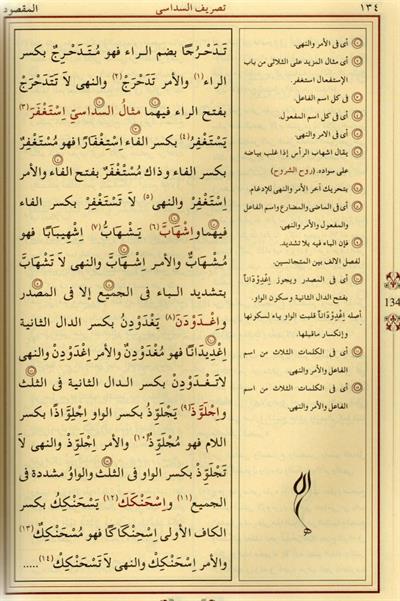 ١٣٤ تصريف السداسى المقصود
تَدَحْرُجًا بضم الراء فهو مُتَدَحْرِجٌ بكسر
الراء (١) والأمر تَدَحْرَجْ (٢) والنهى لَا تَتَدَحْرَجْ
بفتح الراء فيهما مثالُ السداسىّ اِسْتَغْفَرَ (٣)
يَسْتَغْفِرُ (٤) بكسر الفاء اِسْتِغْفَارًا فهو مُسْتَغْفِرٌ
بكسر الفاء وذاك مُسْتَغْفَرٌ بفتح الفاء والأمر
اِسْتَغْفِرْ والنهى (٥) لَا تَسْتَغْفِرْ بكسر الفاء
فيهما واِشْهَابَّ (٦) يَشْهَابُّ (٧) اِشْهِيبَابًا فهو
مُشْهَابٌّ والأمر اِشْهَابَّ والنهى لَا تَشْهَابَّ
بتشديد الباء فى الجميع إلا فى المصدر
واِغْدَوْدَنَ (٨) يَغْدَوْدِنُ بكسر الدال الثانية
اِغْدِيدَانًا فهو مُغْدَوْدِنٌ والأمر اِغْدَوْدِنْ والنهى
لَاتَغْدَوْدِنْ بكسر الدال الثانية فى الثلث
واِجْلَوَّذَ (٩) يَجْلَوِّذُ بكسر الواو اِجْلِوَّاذًا بكسر
اللام فهو مُجْلَوِّذٌ (١٠) والأمر اِجْلَوِّذْ والنهى لَا
تَجْلَوِّذْ بكسر الواو فى الثلث والواوُ مشددة فى
الجميع (١١) واِسْحَنْكَكَ (١٢) يَسْحَنْكِكُ بكسر
الكاف الأولى اِسْحِنْكَاكًا فهو مُسْحَنْكِكٌ (١٣)
والأمر اِسْحَنْكِكْ والنهى لَا تَسْحَنْكِكْ (١٤) .....
أى فى الأمر والنهى.
أى مثال المزيد على الثلاثى من باب
الإستفعال استغفر.
فى كل اسم الفاعل.
أى فى كل اسم المفعول.
أى فى الامر والنهى.
يقال اشهاب الرأس إذا غلب بياضه
على سواده. (روح الشروح)
بتحريك آخر الأمر والنهى للإدغام.
أى فى الماضى والمضارع واسم الفاعل
والمفعول والأمر والنهى.
فإن الباء فيه بلا تشديد.
لفصل الالف بين المتجانسين.
أى فى المصدر ويجوز اِغْدِوْدَاناً
بفتح الدال الثانية وسكون الواو.
أصله اِغْدِوْدَاناً قلبت الواو ياء لسكونها
وإنكسار ماقبلها.
أى فى الكلمات الثلاث من اسم
الفاعل والأمر والنهى.
أى فى الكلمات الثلاث من اسم
الفاعل والأمر والنهى.
134